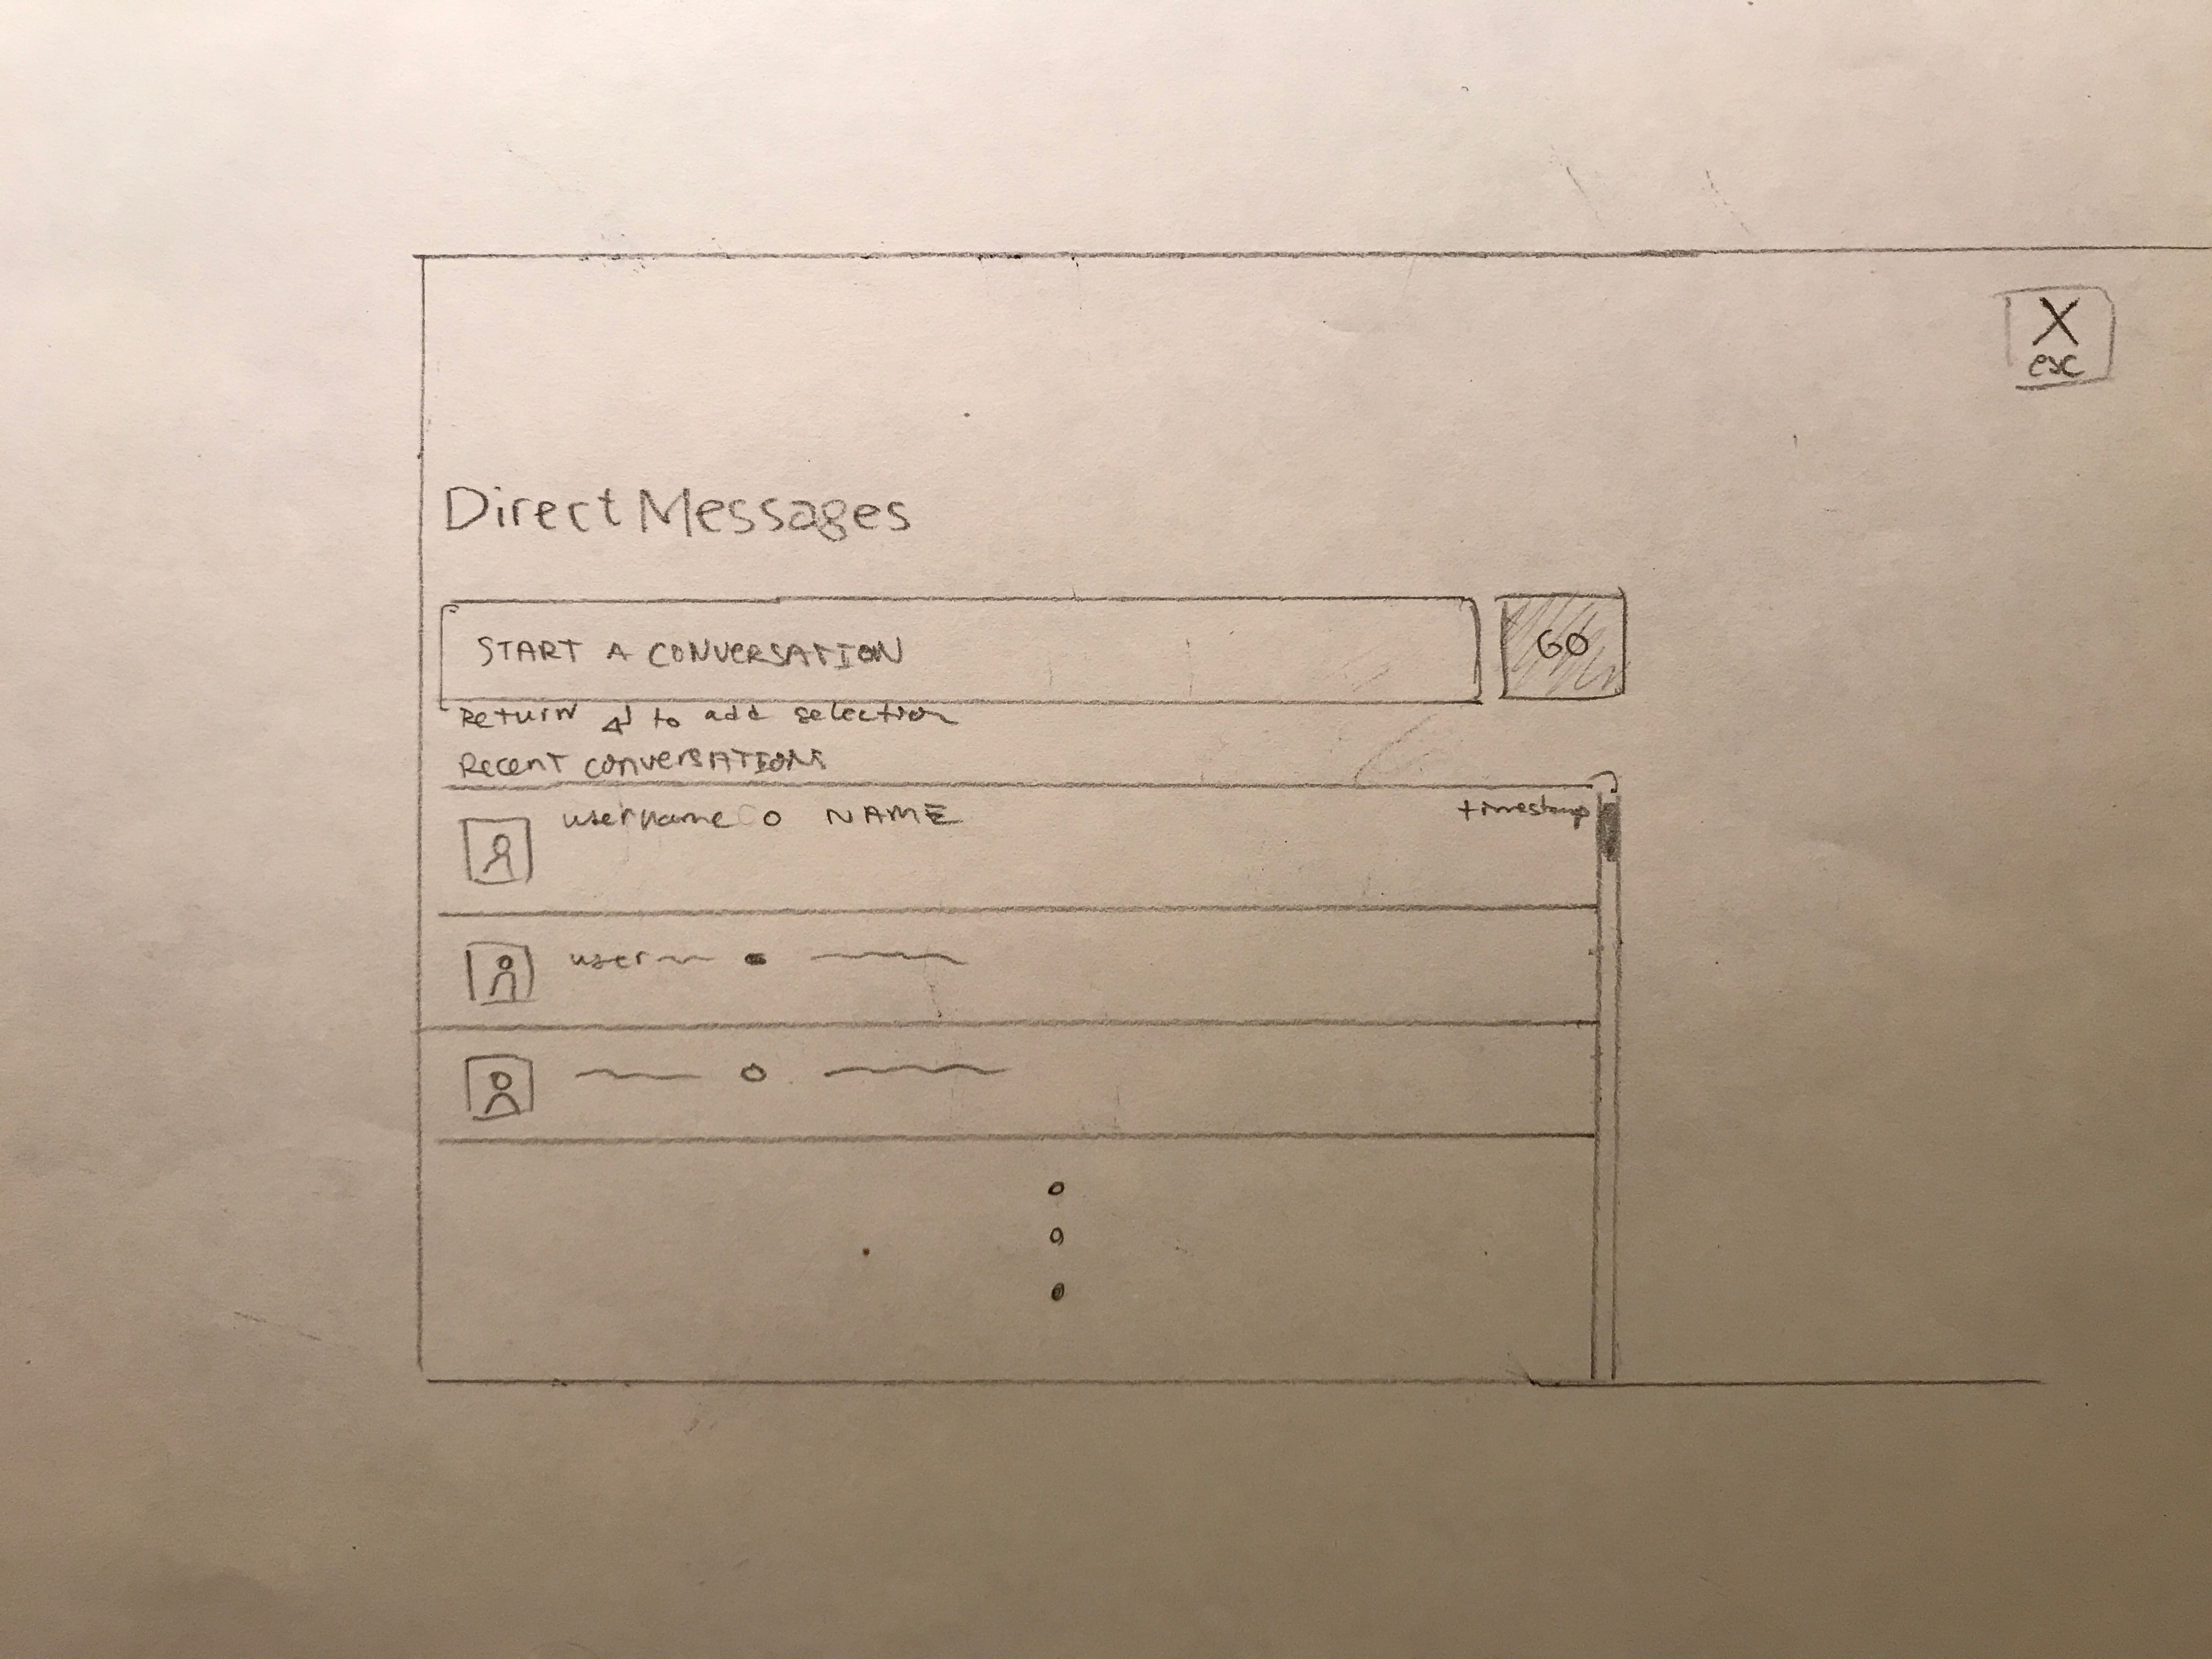 X
esc
Direct Messages
START A CONVERSATION
GO
Return ↵ to add selection
Recent conversations
username o NAME
timestamp
user